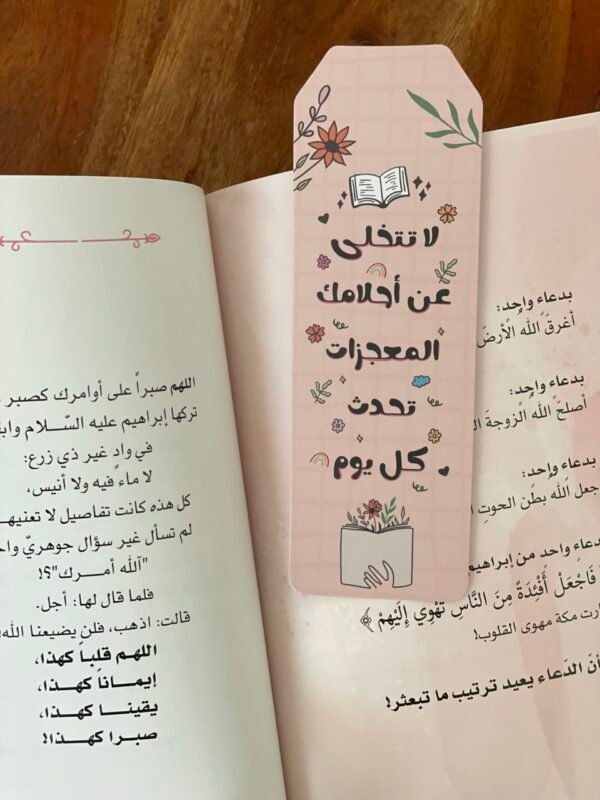 لا تتخلى
عن أحلامك
المعجزات
تحدث
كل يوم
بدعاء واحد:
أغرقَ الله الأرضَ
بدعاء واحد:
أصلحَ الله الزوجةَ
بدعاء واحد:
جعل الله بطن الحوتِ
بدعاءٍ واحدٍ من إبراهيم
فَاجْعَلْ أَفْئِدَةً مِنَ النَّاسِ تَهْوِي إِلَيْهِمْ ﴾
مكة مهوى القلوب!
الدَعاء يعيد ترتيب ما تبعثر!
اللهم صبراً على أوامرك كصبر
تركها إبراهيم عليه السّلام
في وادٍ غير ذي زرع:
لا ماء فيه ولا أنيس،
كل هذه كانت تفاصيل لا تعنيها
لم تسأل غير سؤال جوهريّ
"آلله أمرك"؟!
فلما قال لها: أجل.
قالت: اذهب، فلن يضيعنا الله!
اللهم قلباً كهذا،
إيماناً كهذا،
يقينا كهذا،
صبرا كهذا!